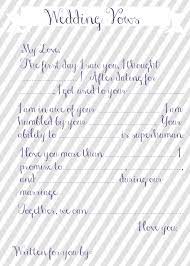 Wedding Vows
My Love,
The first day I saw you, I thought
____________! After dating for
________, I got used to your
____________
I am in awe of your ________. I am
humbled by your ________. Your
ability to ________ is superhuman
I love you more than ________. I
promise to ________, ________,
and ________ during our
marriage.
Together, we can ____________.
I love you,
Written for you by~